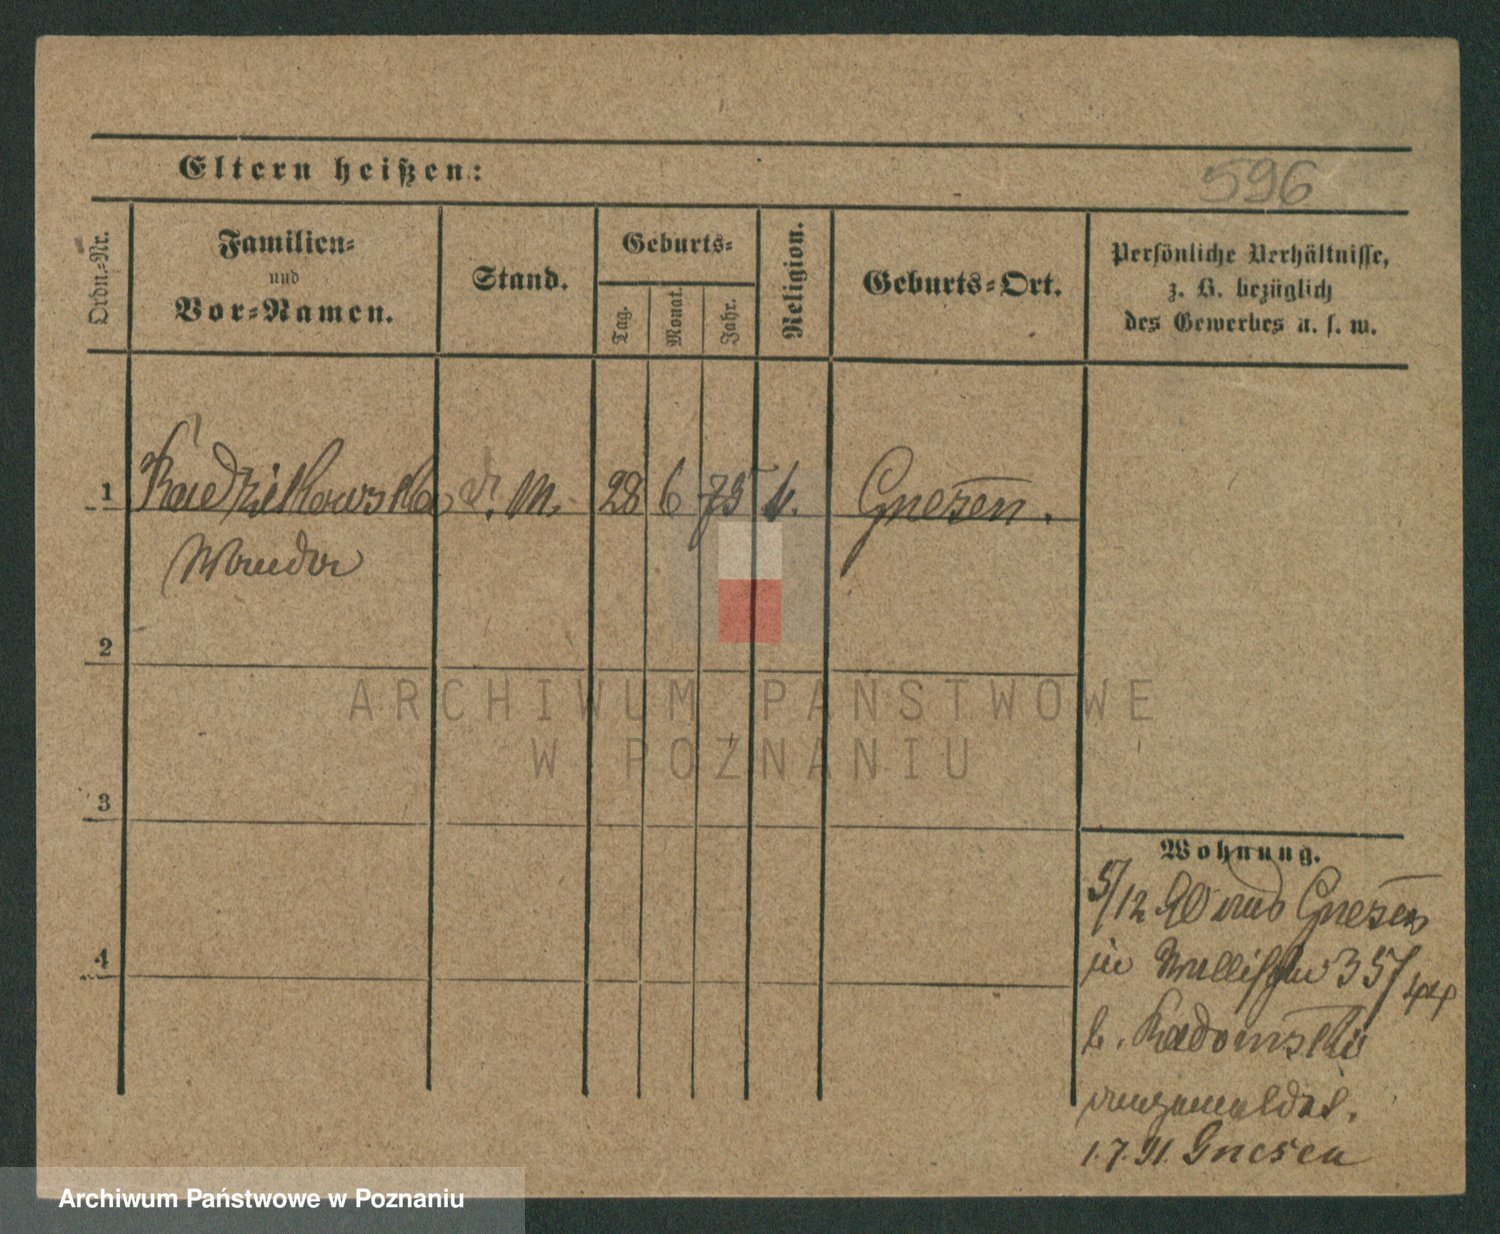 Eltern heißen:
596
Ordn.-Nr.
Familien-
und
Vor-Namen.
Stand.
Geburts-
Tag.
Monat.
Jahr.
Religion.
Geburts-Ort.
Persönliche Verhältnisse,
z. B. bezüglich
des Gewerbes u. s. w.
1
28 6 75 k. Gnesen.
Wanda
2
3
4
Wohnung.
5/12 90 aus Gnesen
in Wallischei 35/44
b. Radomski
angemeldet.
1.7.91. Gnesen
ARCHIWUM PAŃSTWOWE
W POZNANIU
Archiwum Państwowe w Poznaniu